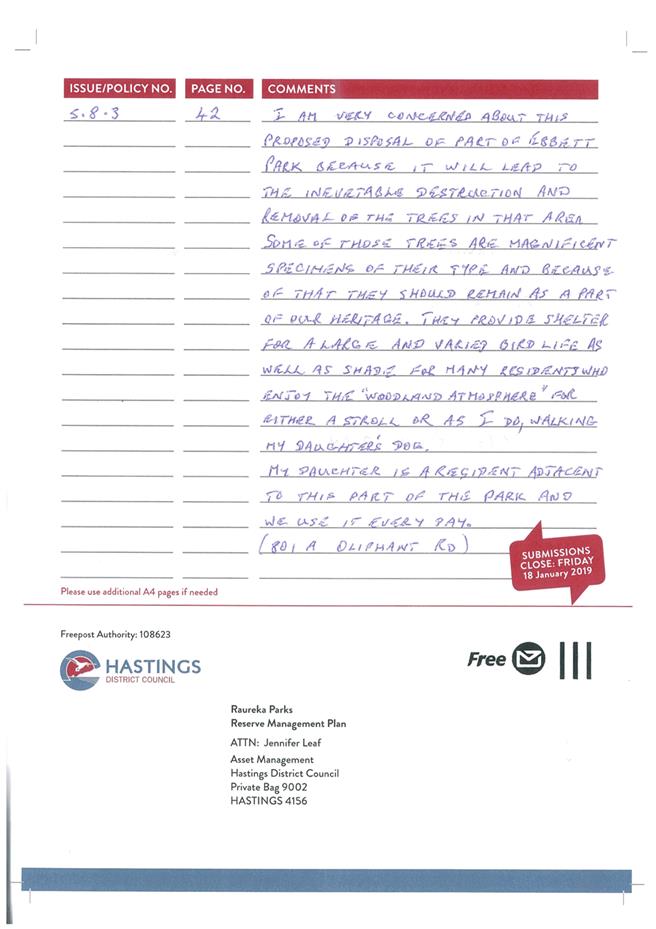 ISSUE/POLICY NO. PAGE NO. COMMENTS
5.8.3 42 I AM VERY CONCERNED ABOUT THIS
PROPOSED DISPOSAL OF PART OF EBBETT
PARK BECAUSE IT WILL LEAD TO
THE INEVETABLE DESTRUCTION AND
REMOVAL OF THE TREES IN THAT AREA
SOME OF THOSE TREES ARE MAGNIFICENT
SPECIMENS OF THEIR TYPE AND BECAUSE
OF THAT THEY SHOULD REMAIN AS A PART
OF OUR HERITAGE. THEY PROVIDE SHELTER
FOR A LARGE AND VARIED BIRD LIFE AS
WELL AS SHADE FOR MANY RESIDENTS WHO
ENJOY THE "WOODLAND ATMOSPHERE" FOR
EITHER A STROLL OR AS I DO, WALKING
MY DAUGHTER'S DOG.
MY DAUGHTER IS A RESIDENT ADJACENT
TO THIS PART OF THE PARK AND
WE USE IT EVERY DAY.
(801 A OLIPHANT RD)
SUBMISSIONS
CLOSE: FRIDAY
18 January 2019
Please use additional A4 pages if needed
Freepost Authority: 108623
HASTINGS
DISTRICT COUNCIL
Free
Raureka Parks
Reserve Management Plan
ATTN: Jennifer Leaf
Asset Management
Hastings District Council
Private Bag 9002
HASTINGS 4156